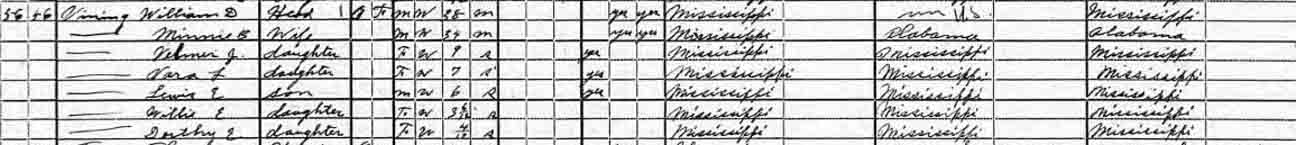 56 46 Vining William D Head O F m W 38 m yes yes Mississippi U.S. Mississippi
— Minnie B Wife m W 34 m yes yes Mississippi Alabama Alabama
— Velmer J. daughter F W 9 s yes Mississippi Mississippi Mississippi
— Vara L daughter F W 7 s yes Mississippi Mississippi Mississippi
— Lewis E son m W 6 s yes Mississippi Mississippi Mississippi
— Willie E daughter F W s Mississippi Mississippi Mississippi
— Dorthy E daughter F W s Mississippi Mississippi Mississippi